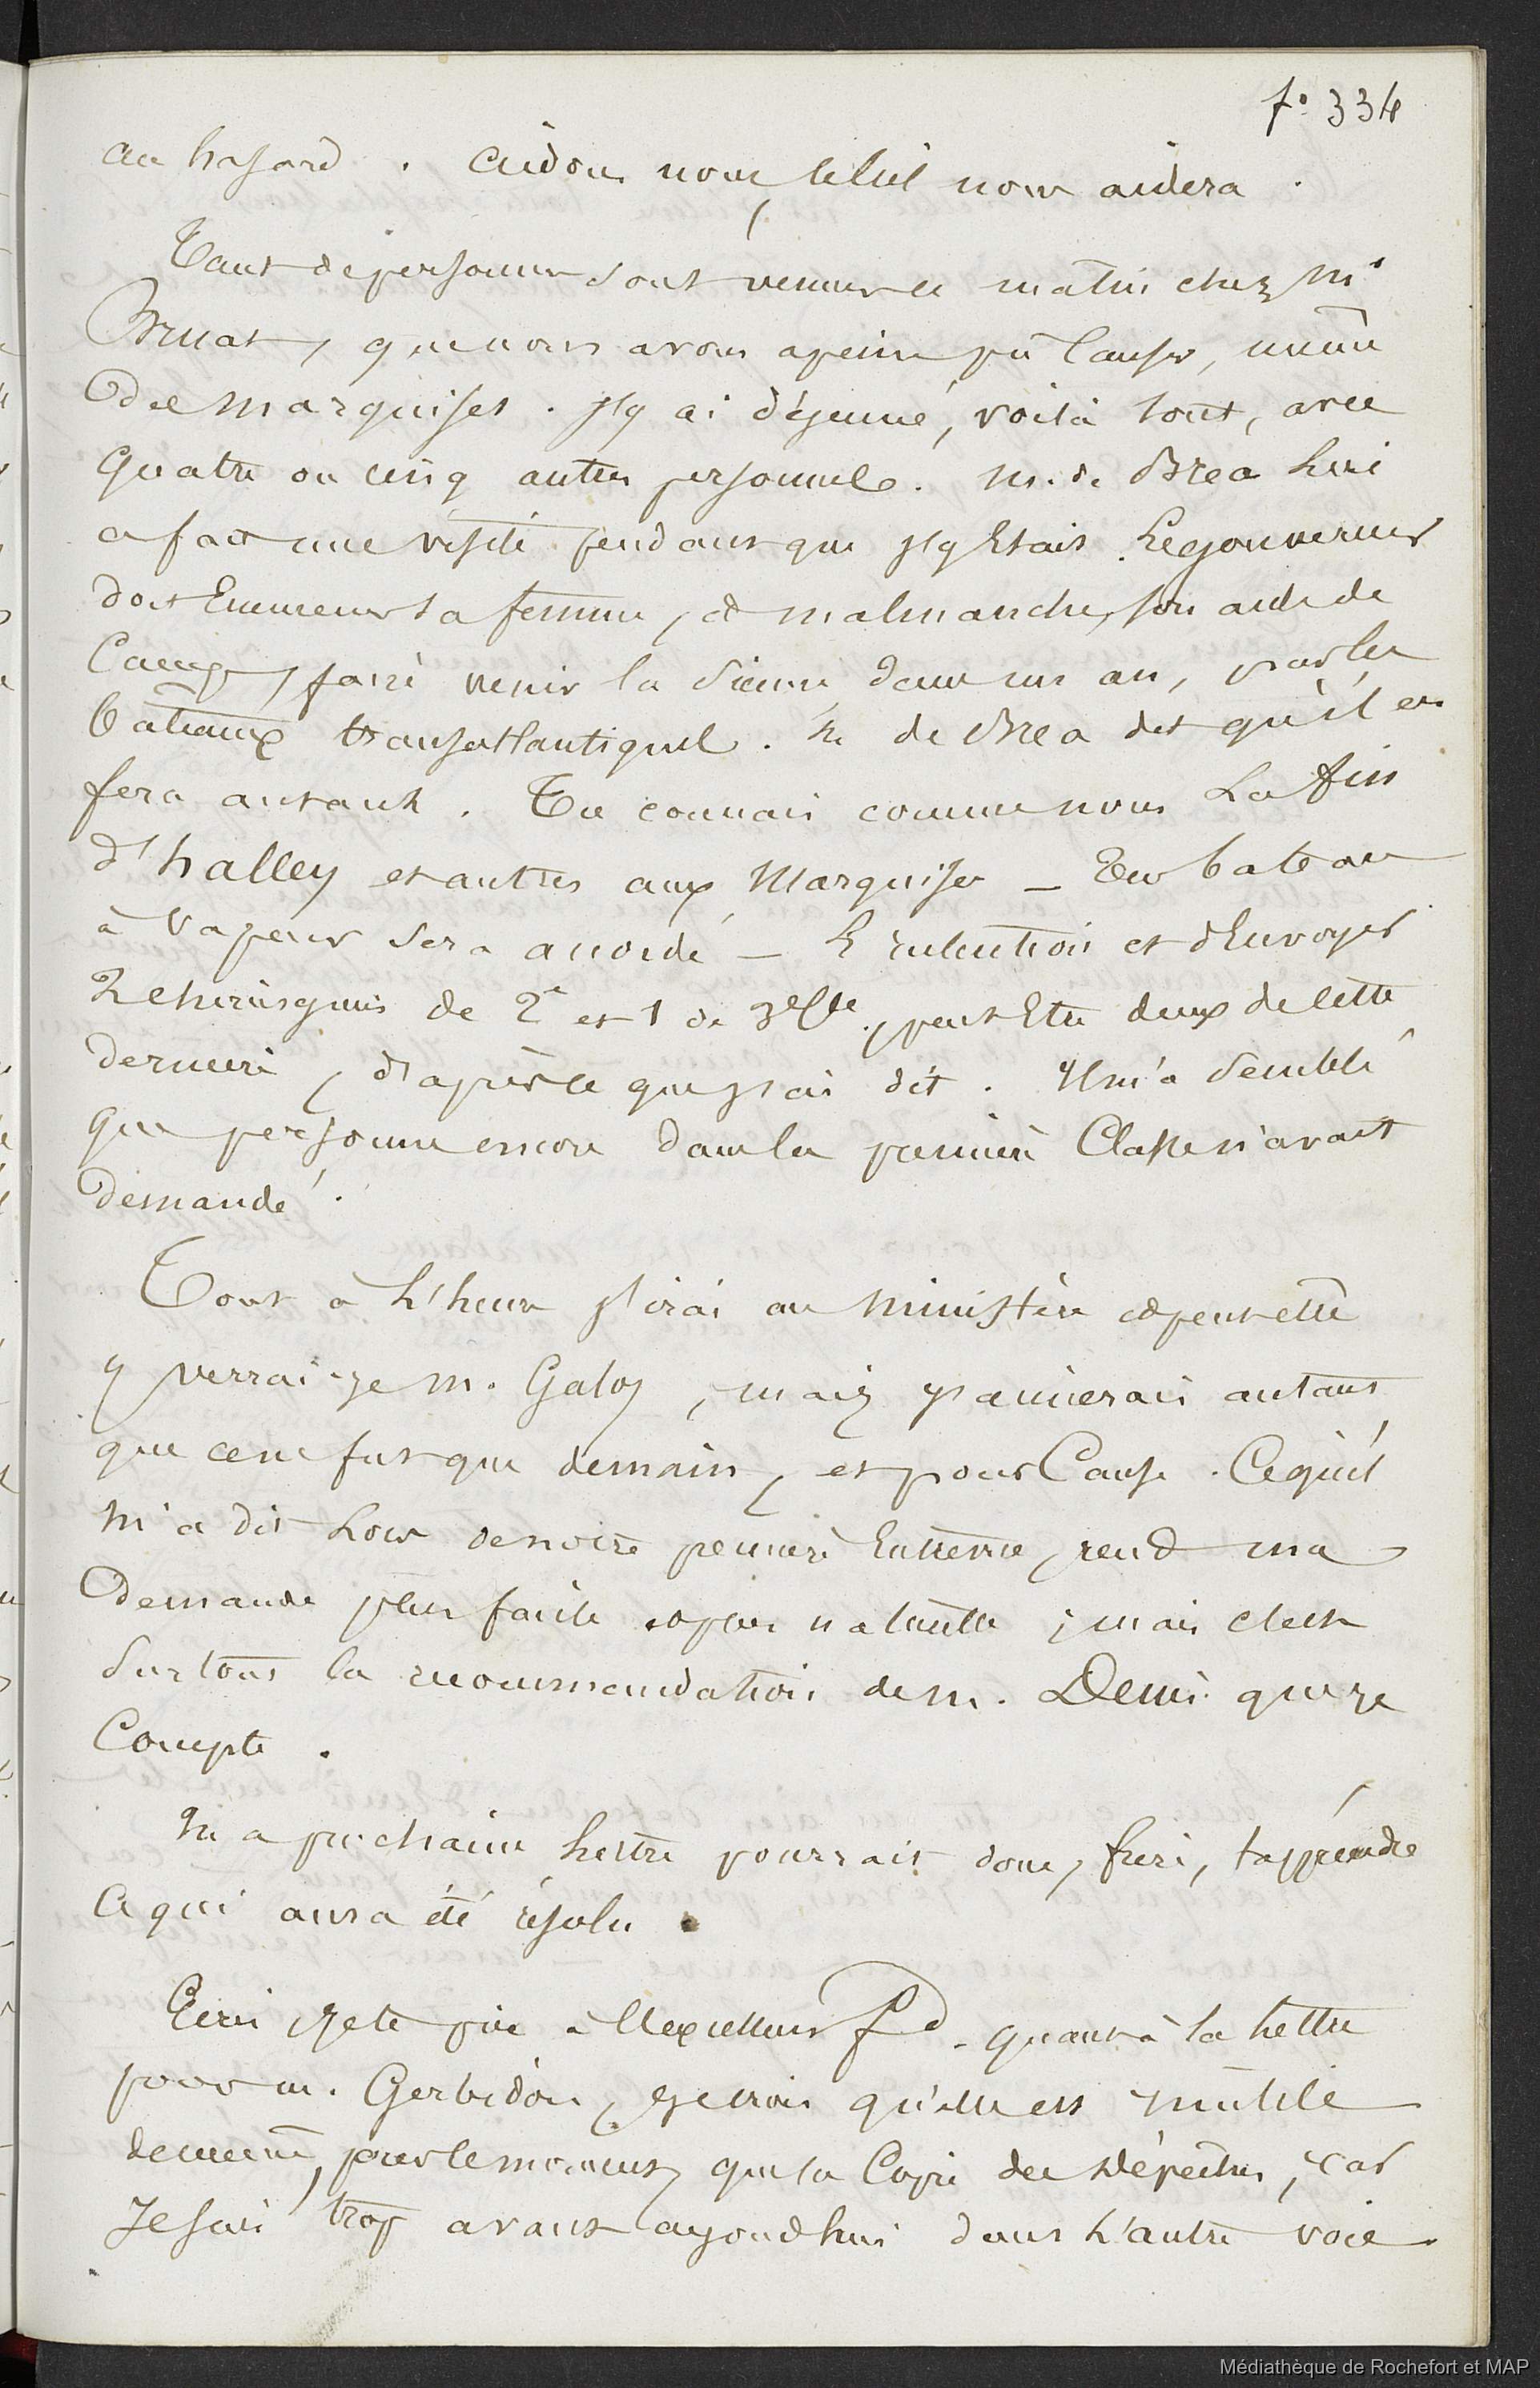 f° 334
au hasard . aidons nous, le Ciel nous aidera .
Tant de personnes sont venues ce matin chez Mr
Bruat, que nous avons à peine pû Causer, même
des Marquises . j'y ai déjeuné, voilà tout, avec
quatre ou cinq autres personnes . M. de Brea lui
a fait une visite pendant que j'y Etais . Le gouverneur
doit Emmener sa femme, et malmanche, son aide de
Camp, faire venir la sienne dans un an, par les
bateaux transatlantiques . M. de Brea dit qu'il en
fera autant . Tu connais comme nous La fin
d'halley et autres aux Marquises _ Un bateau
à vapeur sera accordé _ L'intention est d'Envoyer
2 chirurgiens de 2e et 1 de 3e Cle, peut Etre deux de cette
dernière, d'après ce que j'ai dit . Il m'a semblé
que personne encore dans la première Classe n'avait
demandé .
Tout à L'heure j'irai au Ministère et peut être
y verrai-je M. Galos, mais j'aimerais autant
que ce ne fut que demain, et pour Cause . Ce qu'il
m'a dit Lors de notre premier Entrevue, rend ma
demande plus facile et plus naturelle ; mais c'est
surtout la recommandation de M. Denis que je
Compte .
Ma prochaine Lettre pourrait donc, frère, t'apprendre
Ce qui aura été résolu .
Ecris je te prie à l'excellent fd. quant à la Lettre
pour M. Gerbidon, je crois qu'elle est inutile
de même, pour le moment, que la Copie des Dépêches, car
Je suis trop avant aujourd'hui dans L'autre voie .
Médiathèque de Rochefort et MAP